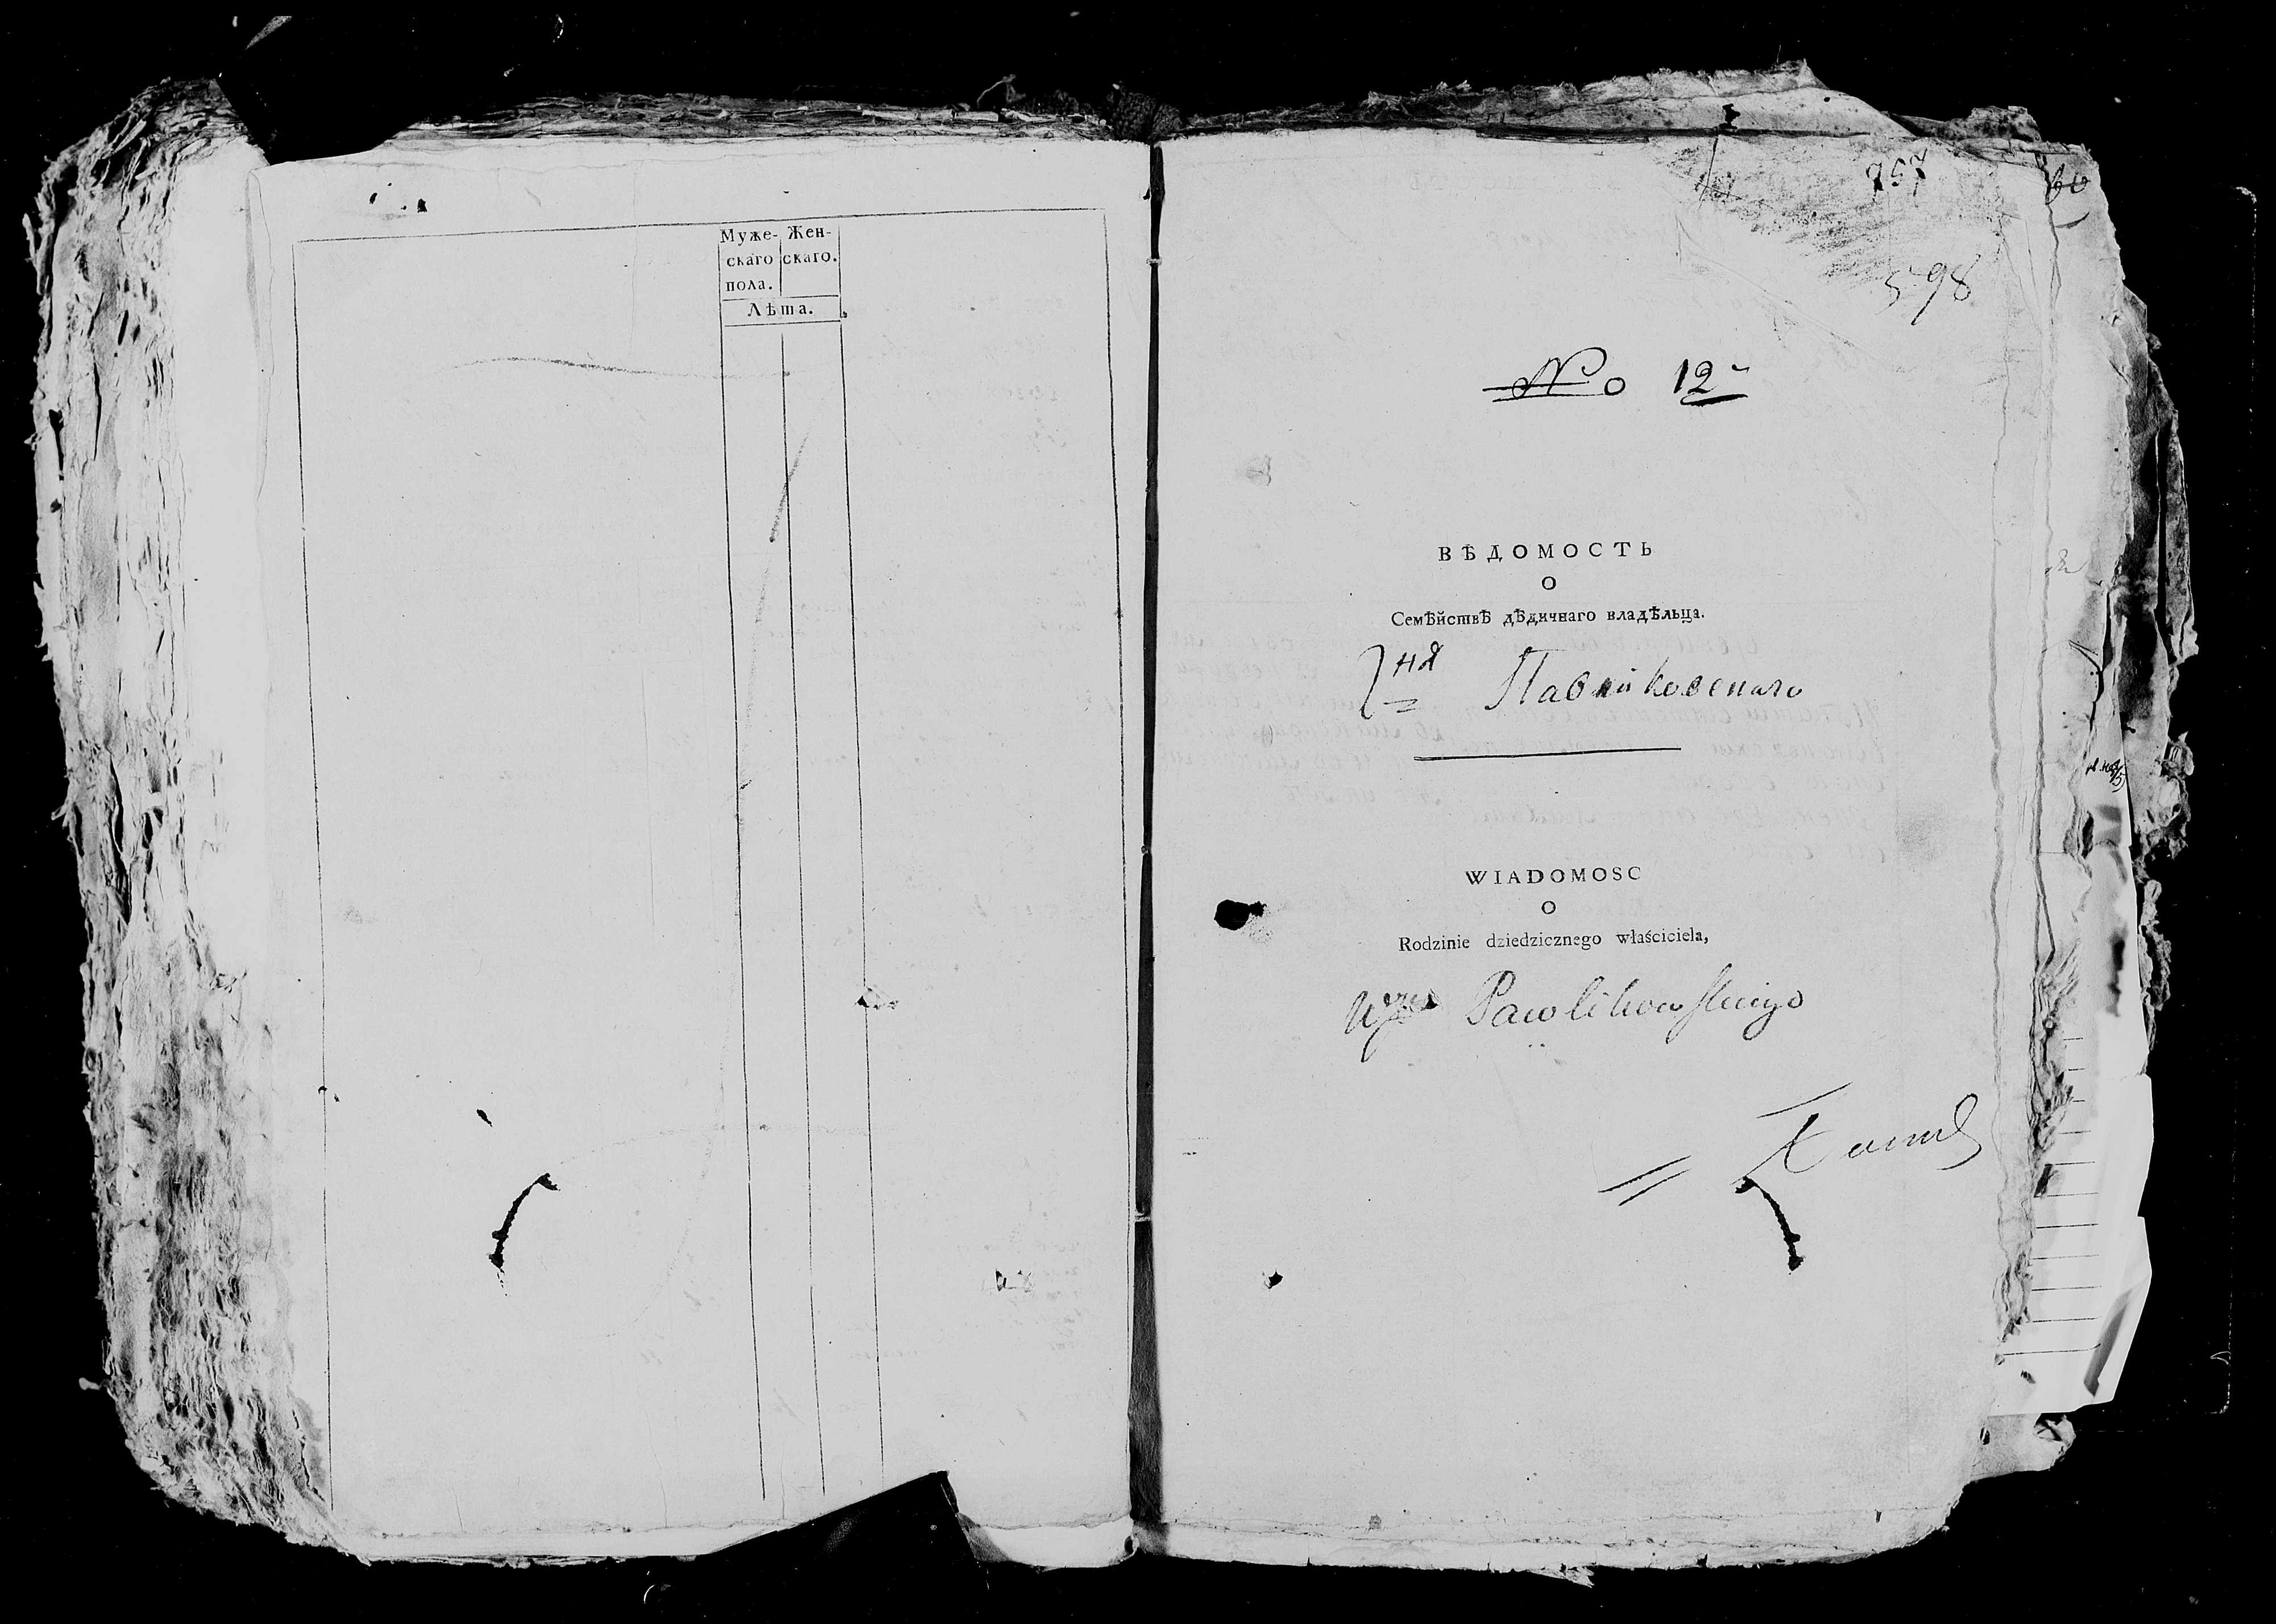 Муже- Жен-
скаго скаго.
пола.
Лѣта.
757
598
No 12
ВѢДОМОСТЬ
О
Семѣйствѣ дѣдичнаго владѣльца.
Павликовскаго
WIADOMOSC
O
Rodzinie dziedzicznego właściciela,
Pawlikowskiego